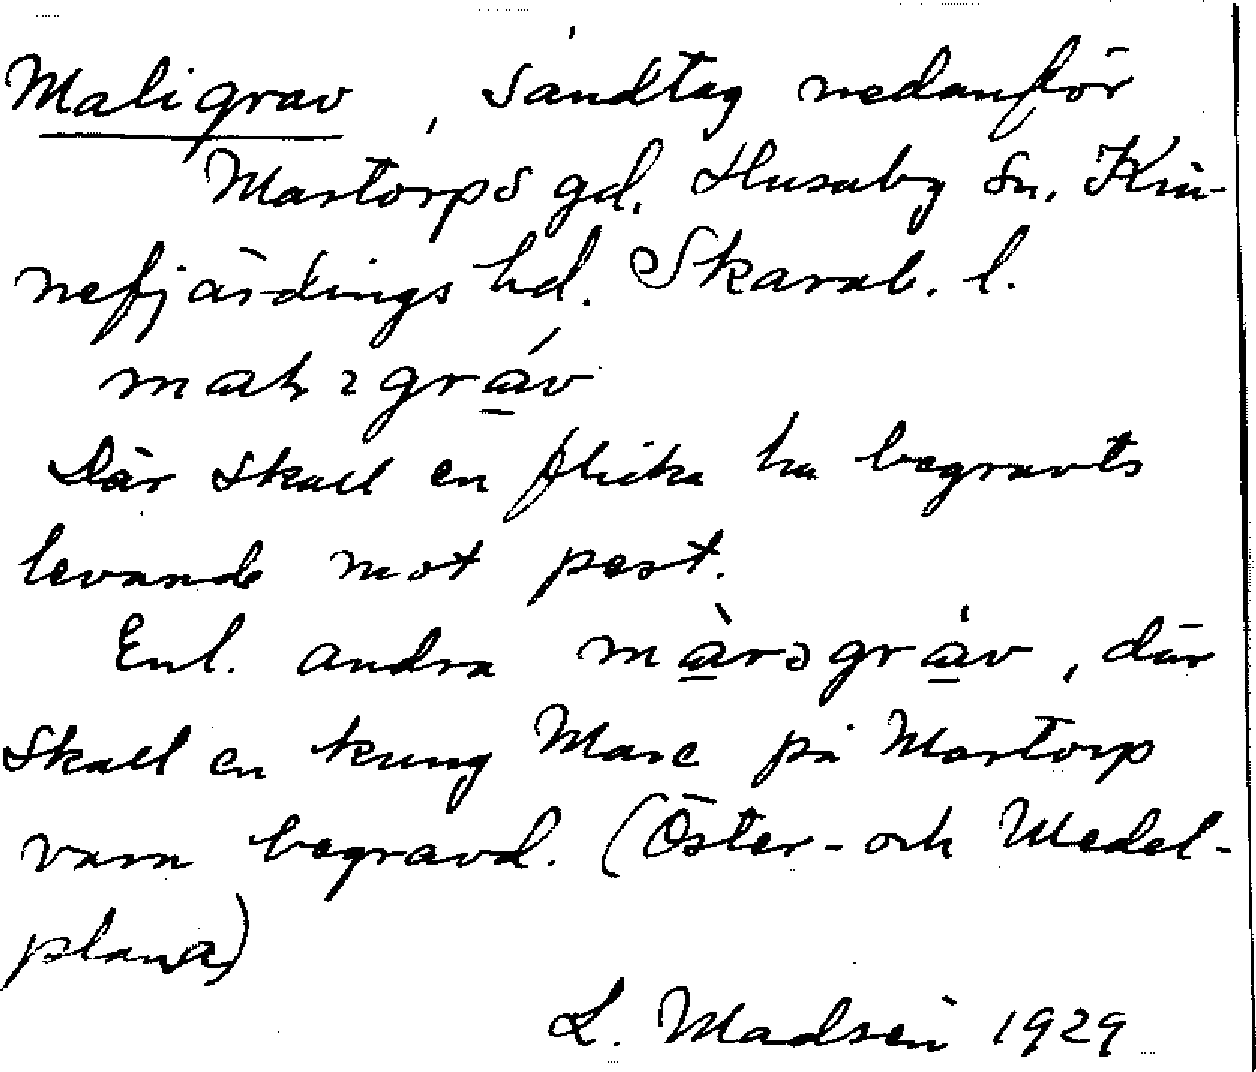 Maligrav, sandtag nedanför
Martorps gd. Husaby sn. Kin-
nefjärdings hd. Skarab. l.
Där skall en flicka ha begravts
levande mot pest.
Enl. andra màrsgráv, där
skall en kung Marse på Martorp
vara begravd. (Öster- och Medel-
plana)
L. Madsén 1929